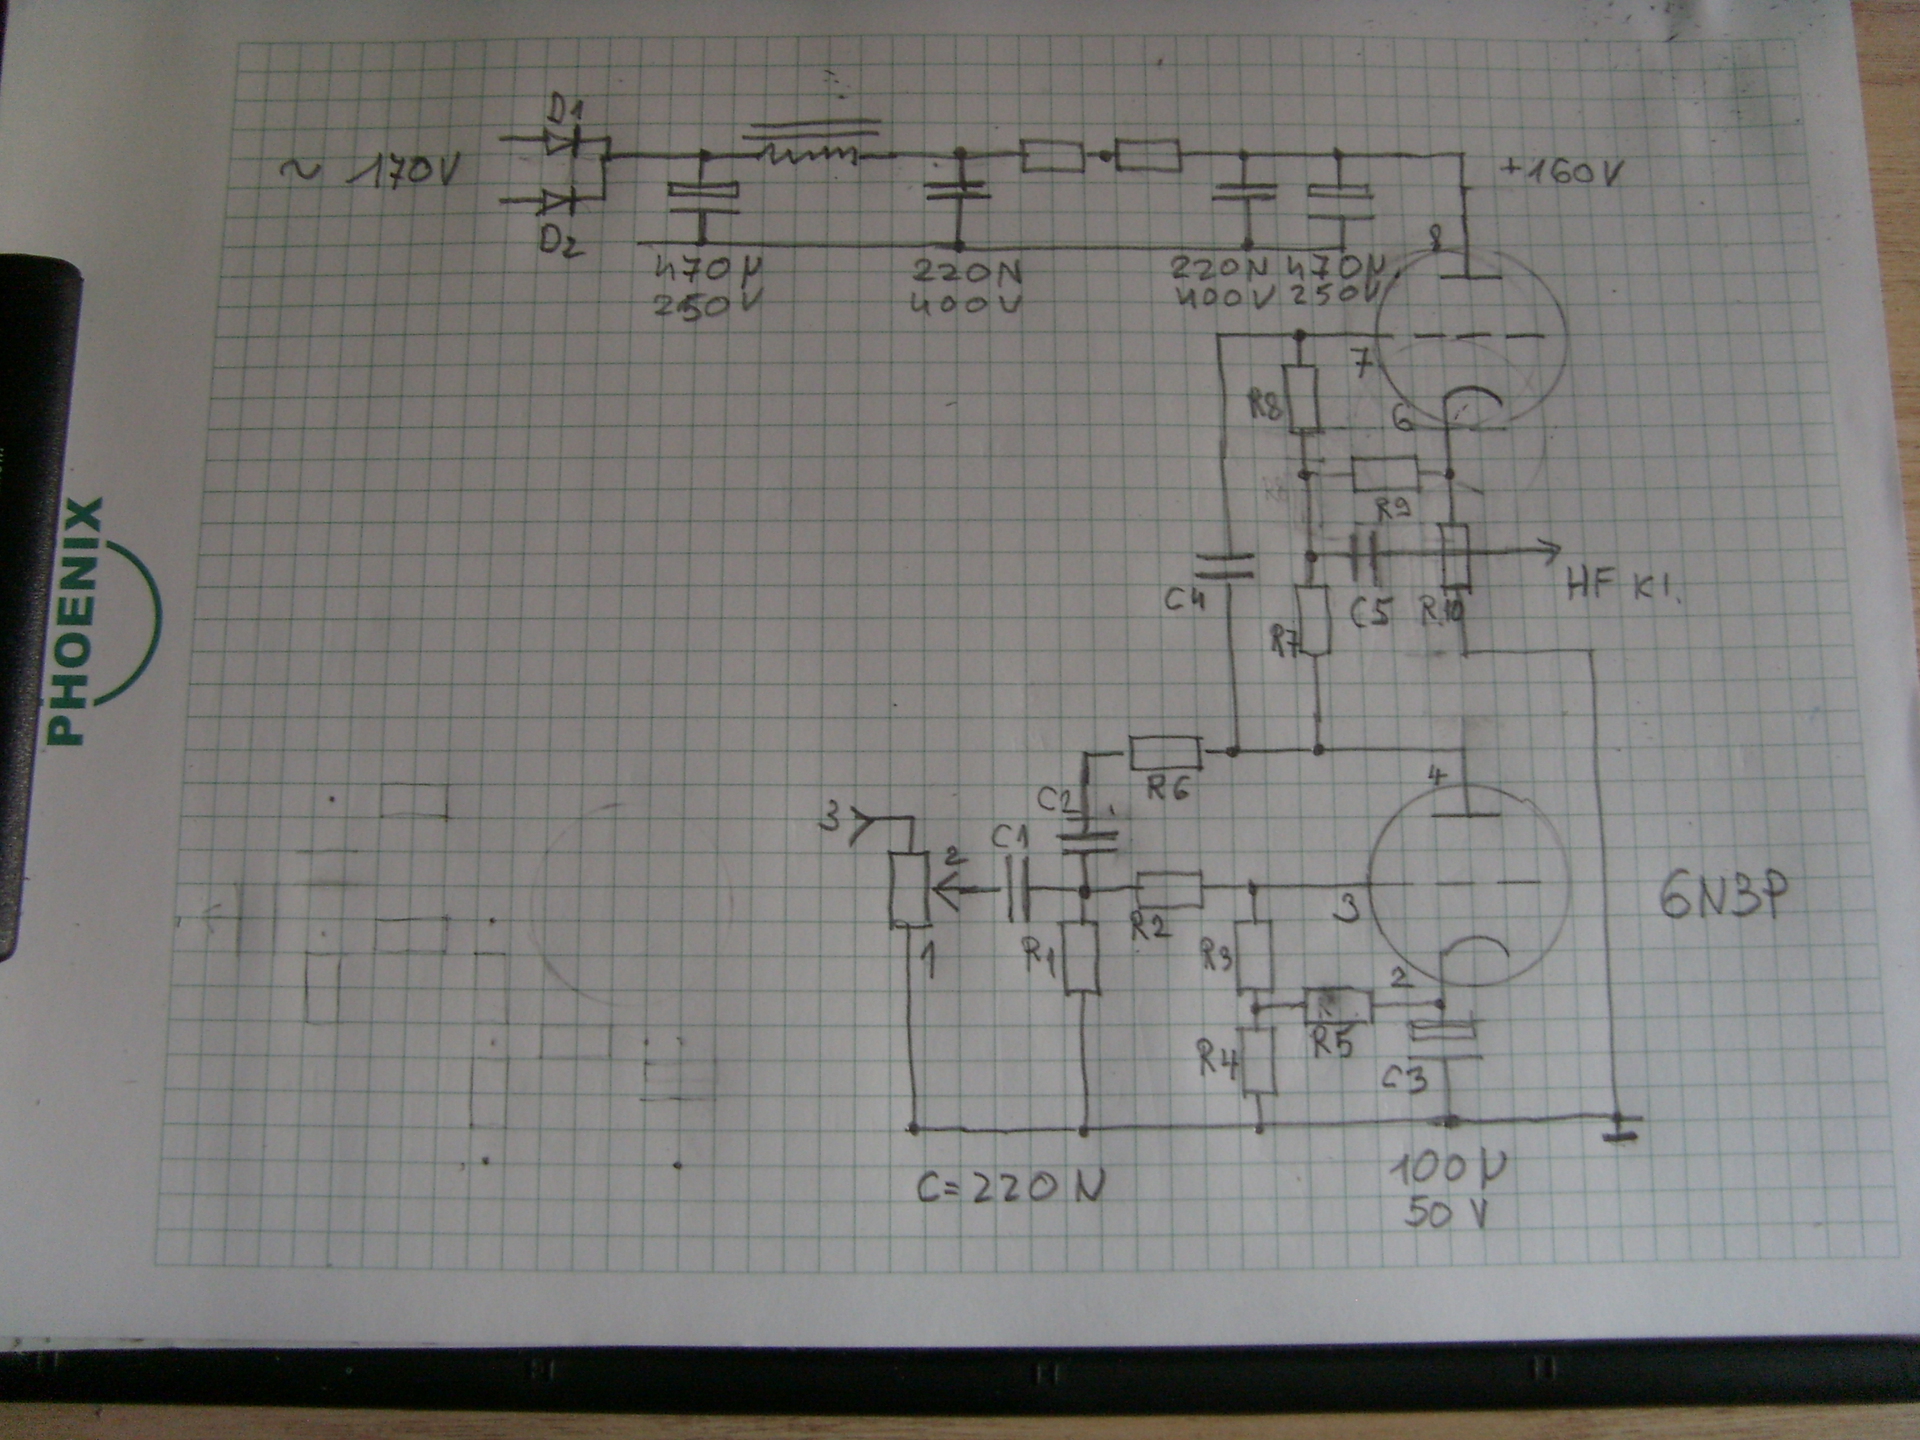 D1
~ 170V
+160V
D2
470µ
250V
220N
400V
220N
400V
470µ
250V
8
7
R8
6
R9
HF Kl.
C4
C5
R10
R7
PHOENIX
4
R6
C2
3
C1
2
6N3P
3
R2
1
R1
R3
2
R5
R4
C3
C=220N
100µ
50V